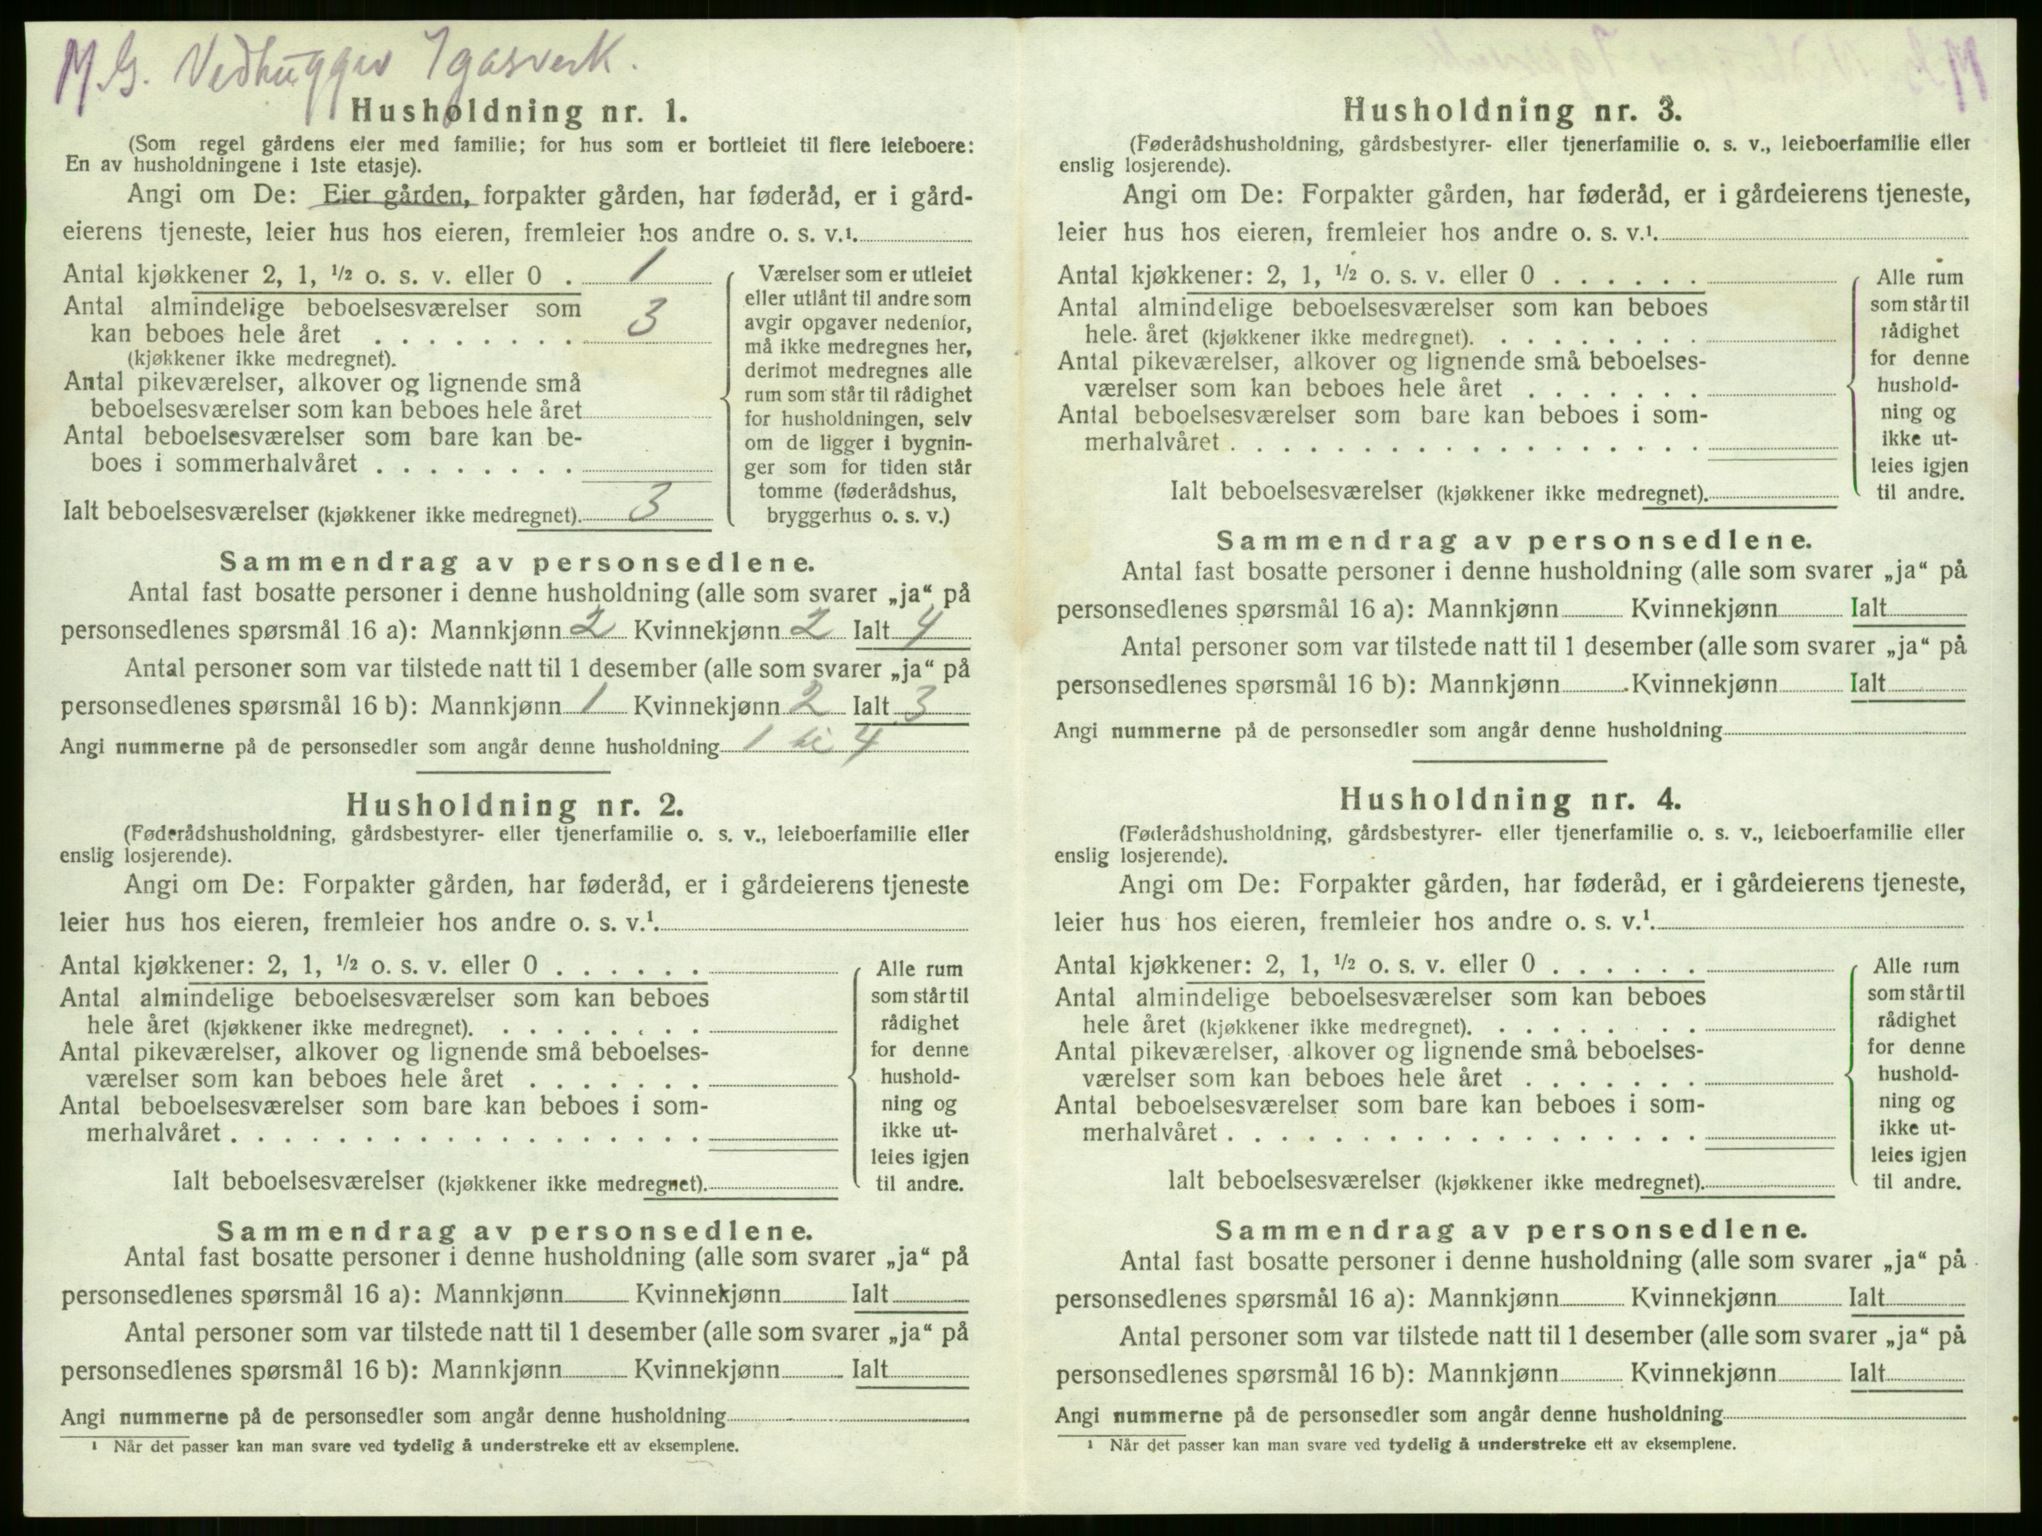 M.G. Vedhugger
Husholdning nr. 1.
(Som regel gårdens eier med familie; for hus som er bortleiet til flere leieboere:
En av husholdningene i 1ste etasje).
Angi om De: Eier gården, forpakter gården, har føderåd, er i gård-
eierens tjeneste, leier hus hos eieren, fremleier hos andre o. s. v.¹.
Antal kjøkkener 2, 1, ½ o. s. v. eller 0 . 1
Antal almindelige beboelsesværelser som
kan beboes hele året . . . . . . . . 3
(kjøkkener ikke medregnet).
Antal pikeværelser, alkover og lignende små
beboelsesværelser som kan beboes hele året
Antal beboelsesværelser som bare kan be-
boes i sommerhalvåret . . . . . . . .
Ialt beboelsesværelser (kjøkkener ikke medregnet). 3
Værelser som er utleiet
eller utlånt til andre som
avgir opgaver nedenfor,
må ikke medregnes her,
derimot medregnes alle
rum som står til rådighet
for husholdningen, selv
om de ligger i bygnin-
ger som for tiden står
tomme (føderådshus,
bryggerhus o. s. v.)
Sammendrag av personsedlene.
Antal fast bosatte personer i denne husholdning (alle som svarer „ja“ på
personsedlenes spørsmål 16 a): Mannkjønn 2 Kvinnekjønn 2 Ialt 4
Antal personer som var tilstede natt til 1 desember (alle som svarer „ja“ på
personsedlenes spørsmål 16 b): Mannkjønn 1 Kvinnekjønn 2 Ialt 3
Angi nummerne på de personsedler som angår denne husholdning 1 til 4
Husholdning nr. 2.
(Føderådshusholdning, gårdsbestyrer- eller tjenerfamilie o. s. v., leieboerfamilie eller
enslig losjerende).
Angi om De: Forpakter gården, har føderåd, er i gårdeierens tjeneste
leier hus hos eieren, fremleier hos andre o. s. v.¹.
Antal kjøkkener: 2, 1, ½ o. s. v. eller 0 . . . . . .
Antal almindelige beboelsesværelser som kan beboes
hele året (kjøkkener ikke medregnet). . . . . . . . .
Antal pikeværelser, alkover og lignende små beboelses-
værelser som kan beboes hele året . . . . . . .
Antal beboelsesværelser som bare kan beboes i som-
merhalvåret . . . . . . . . . . . . . . . . . .
Ialt beboelsesværelser (kjøkkener ikke medregnet).
Alle rum
som står til
rådighet
for denne
hushold-
ning og
ikke ut-
leies igjen
til andre.
Sammendrag av personsedlene.
Antal fast bosatte personer i denne husholdning (alle som svarer „ja“ på
personsedlenes spørsmål 16 a): Mannkjønn Kvinnekjønn Ialt
Antal personer som var tilstede natt til 1 desember (alle som svarer „ja“ på
personsedlenes spørsmål 16 b): Mannkjønn Kvinnekjønn Ialt
Angi nummerne på de personsedler som angår denne husholdning
¹ Når det passer kan man svare ved tydelig å understreke ett av eksemplene.
Husholdning nr. 3.
(Føderådshusholdning, gårdsbestyrer- eller tjenerfamilie o. s. v., leieboerfamilie eller
enslig losjerende).
Angi om De: Forpakter gården, har føderåd, er i gårdeierens tjeneste,
leier hus hos eieren, fremleier hos andre o. s. v.¹.
Antal kjøkkener: 2, 1, ½ o. s. v. eller 0 . . . . . .
Antal almindelige beboelsesværelser som kan beboes
hele. året (kjøkkener ikke medregnet). . . . . . . . .
Antal pikeværelser, alkover og lignende små beboelses-
værelser som kan beboes hele året . . . . . . .
Antal beboelsesværelser som bare kan beboes i som-
merhalvåret . . . . . . . . . . . . . . . . . .
Ialt beboelsesværelser (kjøkkener ikke medregnet).
Alle rum
som står til
rådighet
for denne
hushold-
ning og
ikke ut-
leies igjen
til andre.
Sammendrag av personsedlene.
Antal fast bosatte personer i denne husholdning (alle som svarer „ja“ på
personsedlenes spørsmål 16 a): Mannkjønn Kvinnekjønn Ialt
Antal personer som var tilstede natt til 1 desember (alle som svarer „ja“ på
personsedlenes spørsmål 16 b): Mannkjønn Kvinnekjønn Ialt
Angi nummerne på de personsedler som angår denne husholdning
Husholdning nr. 4.
(Føderådshusholdning, gårdsbestyrer- eller tjenerfamilie o. s. v., leieboerfamilie eller
enslig losjerende).
Angi om De: Forpakter gården, har føderåd, er i gårdeierens tjeneste,
leier hus hos eieren, fremleier hos andre o. s. v.¹.
Antal kjøkkener: 2, 1, ½ o. s. v. eller 0 . . . . . .
Antal almindelige beboelsesværelser som kan beboes
hele året (kjøkkener ikke medregnet). . . . . . . . .
Antal pikeværelser, alkover og lignende små beboelses-
værelser som kan beboes hele året . . . . . . .
Antal beboelsesværelser som bare kan beboes i som-
merhalvåret . . . . . . . . . . . . . . . . . .
Ialt beboelsesværelser (kjøkkener ikke medregnet).
Alle rum
som står til
rådighet
for denne
hushold-
ning og
ikke ut-
leies igjen
til andre.
Sammendrag av personsedlene.
Antal fast bosatte personer i denne husholdning (alle som svarer „ja“ på
personsedlenes spørsmål 16 a): Mannkjønn Kvinnekjønn Ialt
Antal personer som var tilstede natt til 1 desember (alle som svarer „ja“ på
personsedlenes spørsmål 16 b): Mannkjønn Kvinnekjønn Ialt
Angi nummerne på de personsedler som angår denne husholdning
¹ Når det passer kan man svare ved tydelig å understreke ett av eksemplene.